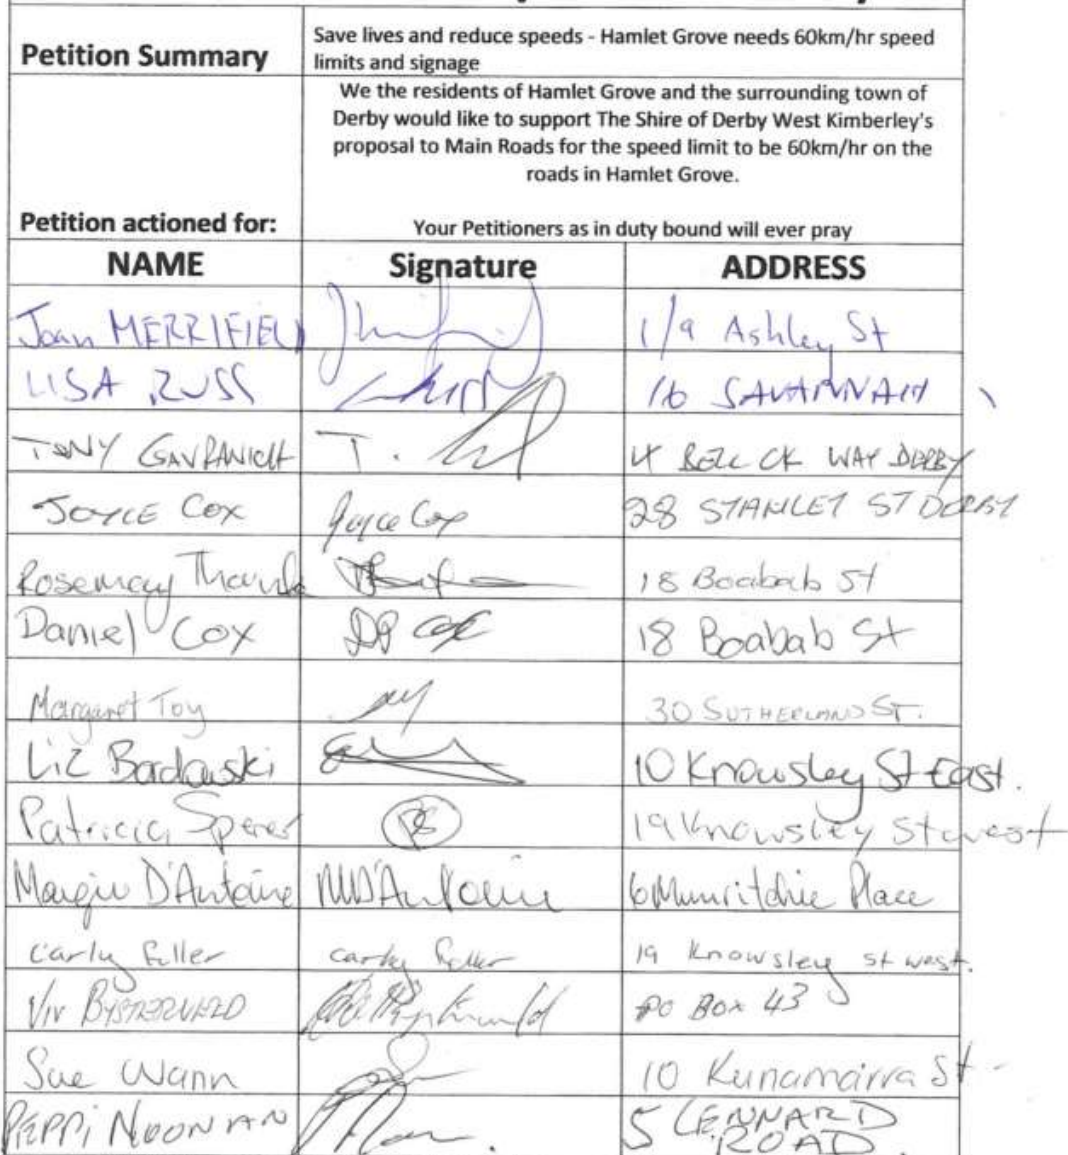 Petition Summary
Save lives and reduce speeds - Hamlet Grove needs 60km/hr speed
limits and signage
We the residents of Hamlet Grove and the surrounding town of
Derby would like to support The Shire of Derby West Kimberley's
proposal to Main Roads for the speed limit to be 60km/hr on the
roads in Hamlet Grove.
Petition actioned for:
Your Petitioners as in duty bound will ever pray
NAME Signature ADDRESS
Joan MERRIFIELD 1/9 Ashley St
LISA RUSS 16 SAVANNAH
TONY GAVRANICH T. WAY DERBY
JOYCE COX Joyce Cox 28 STANLEY ST DERBY
Rosemary 18 Boabab St
Daniel Cox DP Cox 18 Boabab St
Margaret Toy 30 SUTHERLAND ST.
Liz Bordowski 10 Knowsley St East.
Patricia PS 19 Knowsley St west
Margie D'Antoine MD'Antoine 6 Munritchie Place
Carly Fuller Carly Fuller 19 Knowsley st west.
Viv BYSTERVELD PO BOX 43
Sue Wann 10 Kunamarra St
PEPPI NOONAN 5 LENNARD
ROAD.